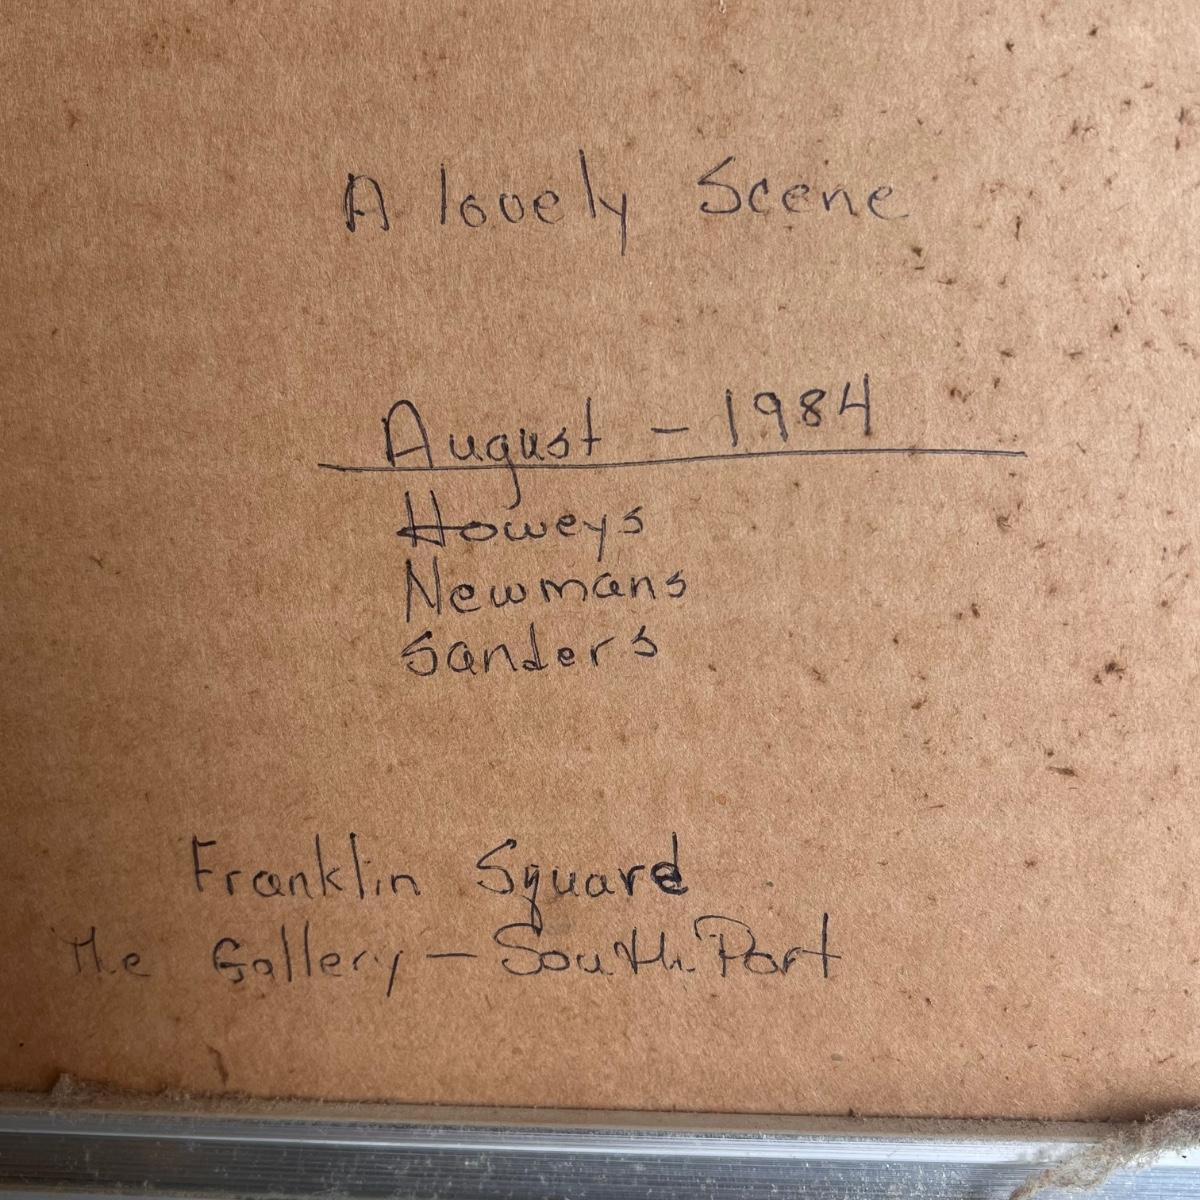 A lovely Scene
August - 1984
Howeys
Newmans
Sanders
Franklin Square
The Gallery - South Port